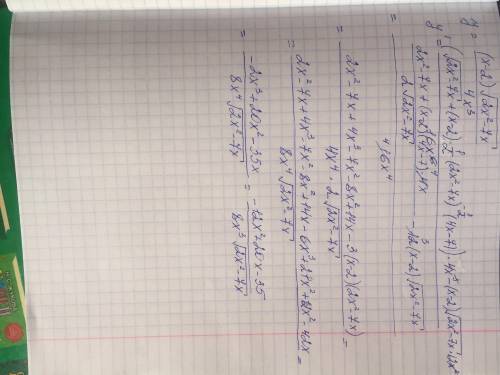 y = (x-2)√(2x²-7x) / 4x³
y' = (√(2x²-7x) + (x-2)·½(2x²-7x)^(-½)·(4x-7))·4x³-(x-2)√(2x²-7x)·12x² / 16x⁶ =
= 2x²-7x+(x-2)(4x-7)·4x / 2√(2x²-7x) - 12(x-2)√(2x²-7x) / 16x⁴
= 2x²-7x+4x³-7x²-8x²+14x-3(x-2)(2x²-7x) / 4x⁴·2√(2x²-7x) =
= 2x²-7x+4x³-7x²-8x²+14x-6x³+21x²+12x²-42x / 8x⁴√(2x²-7x) =
= -2x³+20x²-35x / 8x⁴√(2x²-7x) = -2x²+20x-35 / 8x³√(2x²-7x)